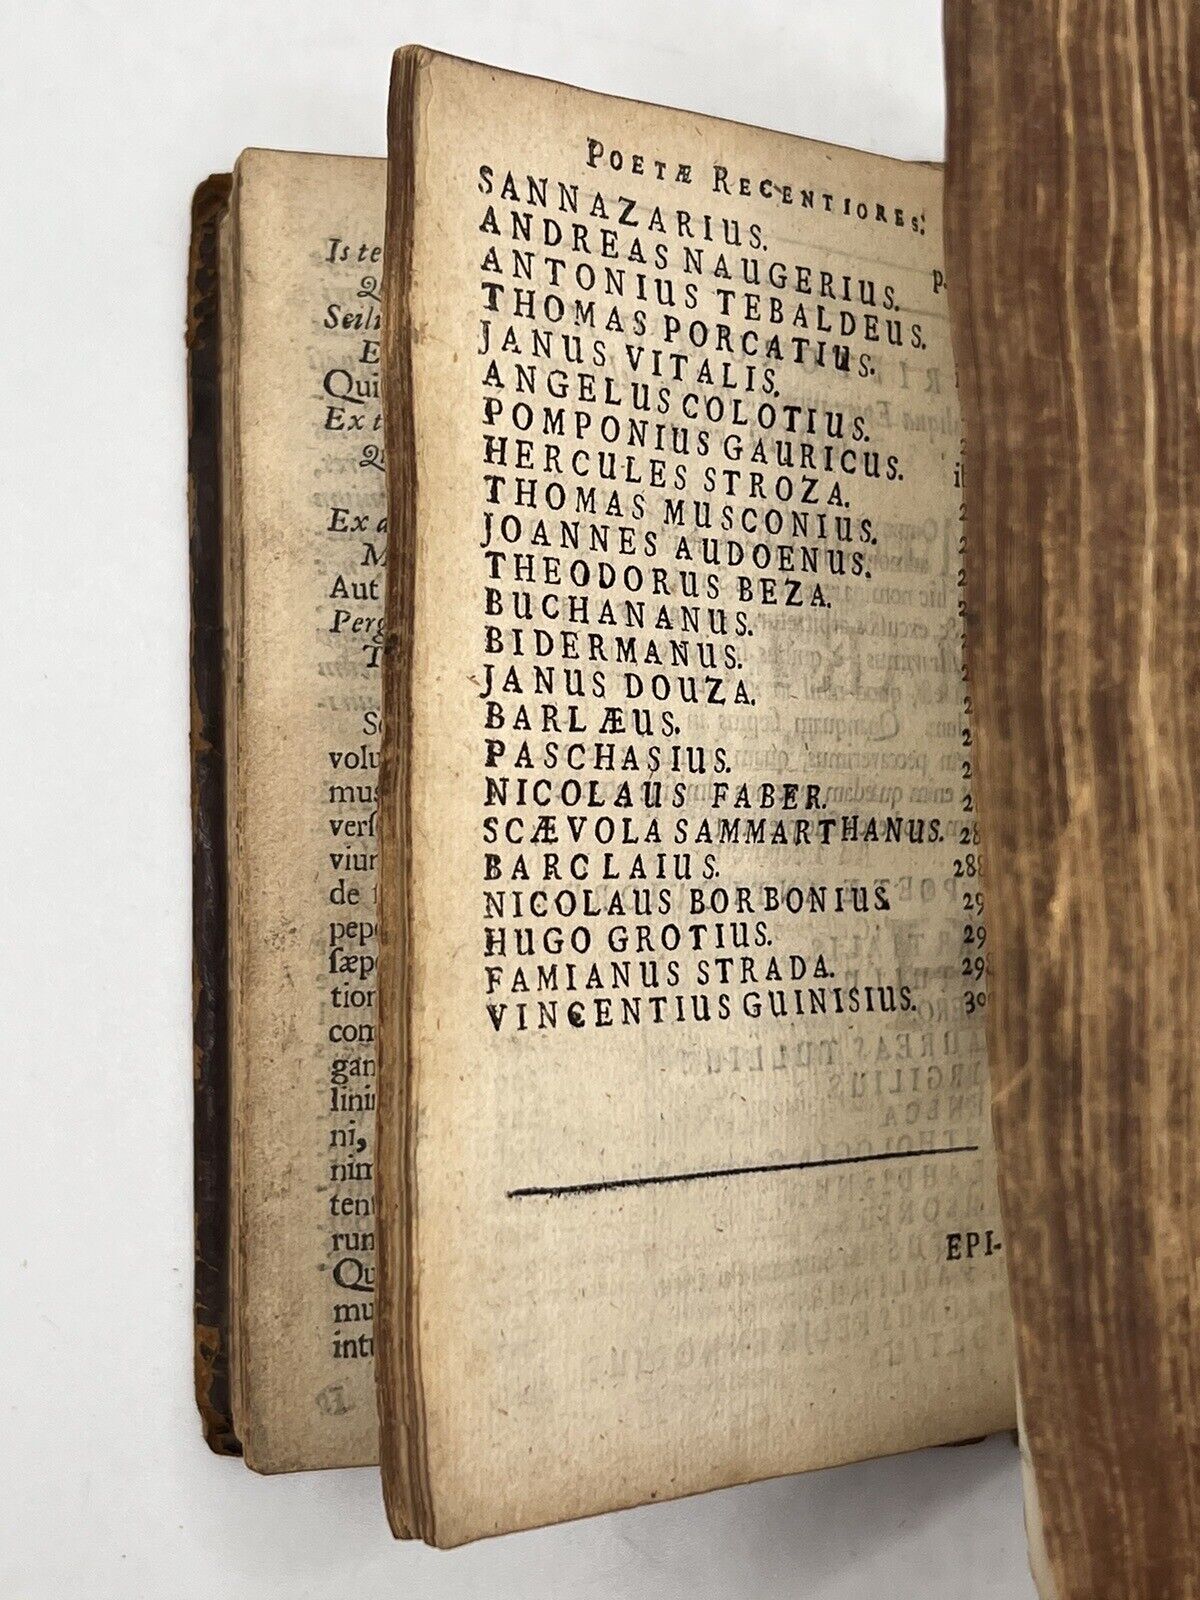 Is te
Seili
E
Qui
Ex t
Ex a
M
Aut
Perg
T
volu
mus
verſ
viun
de
pepe
ſæpe
tion
com
gan
lini
ni,
nim
tent
run
Qu
mu
intu
POETÆ RECENTIORES.
SANNAZARIUS.
ANDREAS NAUGERIUS. P.
ANTONIUS TEBALDEUS.
THOMAS PORCATIUS.
JANUS VITALIS.
ANGELUS COLOTIUS. 2
POMPONIUS GAURICUS. ib
HERCULES STROZA. 2
THOMAS MUSCONIUS. 2
JOANNES AUDOENUS. 2
THEODORUS BEZA. 2
BUCHANANUS. 2
BIDERMANUS. 2
JANUS DOUZA. 2
BARLÆUS. 2
PASCHASIUS. 2
NICOLAUS FABER. 2
SCÆVOLA SAMMARTHANUS. 28
BARCLAIUS. 288
NICOLAUS BORBONIUS. 29
HUGO GROTIUS. 29
FAMIANUS STRADA. 298
VINCENTIUS GUINISIUS. 30
EPI-